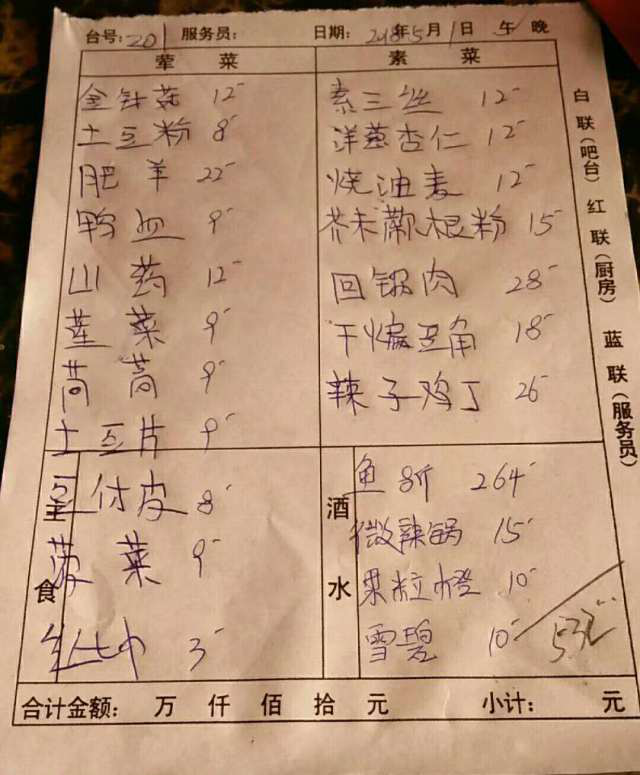 台号:201 服务员: 日期: 2018年5月1日 午 晚
荤 菜 素 菜
金针菇 12-
土豆粉 8-
肥羊 22-
鸭血 9-
山药 12-
茎菜 9-
茼蒿 9-
土豆片 9-
素三丝 12-
洋葱杏仁 12-
烧油麦 12-
芥末蕨根粉 15-
回锅肉 28-
干煸豆角 18-
辣子鸡丁 26-
主食
豆付皮 8-
菠菜 9-
3-
酒水
鱼 8斤 264-
微辣锅 15-
果粒橙 10-
雪碧 10-
532
合计金额: 万 仟 佰 拾 元 小计: 元
白联(吧台) 红联(厨房) 蓝联(服务员)